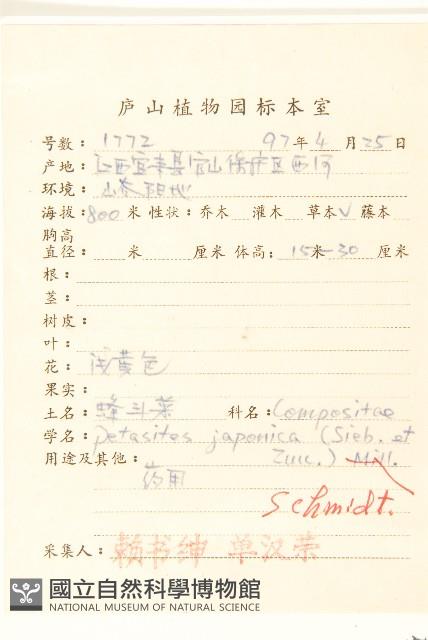 庐山植物园标本室
号数： 1772 97年4月25日
产地： 江西宜丰县官山保护区西河
环境： 山谷阴地
海拔： 800米 性状： 乔木 灌木 草本√ 藤本
胸高
直径： 米 厘米 体高： 15米—30 厘米
根：
茎：
树皮：
叶：
花： 浅黄色
果实：
土名： 蜂斗菜 科名： Compositae
学名： petasites japonica (Sieb. et
用途及其他： Zucc.) Mill.
药用
Schmidt.
采集人： 赖书绅 单汉荣
國立自然科學博物館
NATIONAL MUSEUM OF NATURAL SCIENCE